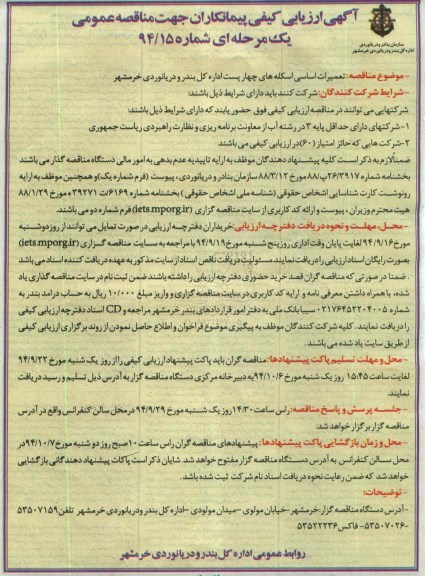 آگهی ارزیابی کیفی پیمانکاران جهت مناقصه عمومی
یک مرحله ای شماره ۹۴/۱۵
سازمان بنادر و دریانوردی
اداره کل بندر و دریانوردی خرمشهر
- موضوع مناقصه: تعمیرات اساسی اسکله های چهار پست اداره کل بندر و دریانوردی خرمشهر
- شرایط شرکت کنندگان: شرکت کنند باید دارای شرایط ذیل باشند:
شرکتهایی می توانند در مناقصه ارزیابی کیفی فوق حضور یابند که دارای شرایط ذیل باشند:
۱-شرکتهای دارای حداقل پایه ۳ در رشته آب از معاونت برنامه ریزی و نظارت راهبردی ریاست جمهوری
۲-شرکت هایی که حائز امتیاز (۶۰) در ارزیابی کیفی می باشند
ضمناً لازم به ذکر است کلیه پیشنهاد دهندگان موظف به ارایه تاییدیه عدم بدهی به امور مالی دستگاه مناقصه گذار می باشند
بخشنامه شماره ۲۶/۳۹۱۷/ب۸۸ مورخ ۸۸/۳/۱۲ سازمان بنادر و دریانوردی ، پیوست (فرم شماره یک) و همچنین موظف به ارایه
رونوشت کارت شناسایی اشخاص حقوقی (شناسه ملی اشخاص حقوقی) بخشنامه شماره ۱۶۹ت/۳۹۲۷۱ه مورخ ۸۸/۱/۲۹
هیت محترم وزیران ، پیوست و ارائه کد کاربری از سایت مناقصه گزاری (iets.mporg.ir) (فرم شماره دو می باشند.
- محل، مهلت و نحوه دریافت دفترچه ارزیابی: خریداران دفترچه ارزیابی در صورت تمایل می توانند از روز دوشنبه
مورخ ۹۴/۹/۱۶ لغایت پایان وقت اداری روز پنج شنبه مورخ ۹۴/۹/۱۹ با مراجعه به سایت مناقصه گزاری (iets.mporg.ir)
بصورت رایگان اسناد ارزیابی را دریافت نمایند.مسئولیت دریافت ناقص اسناد از سایت مذکور به عهده دریافت کننده اسناد می باشد
. ضمنا در صورتی که مناقصه گران قصد خرید حضوری دفترچه ارزیابی را داشته باشند ضمن ثبت نام در سایت مناقصه گذاری یاد
شده، با همراه داشتن معرفی نامه و ارایه کد کاربری در سایت مناقصه گزاری و واریز مبلغ ۱۰/۰۰۰ ریال به حساب درامد بندر به
شماره ۲۱۷۶۴۵۲۲۰۴۰۰۵ سیبا بانک ملی به دفتر امور قراردادهای بندر خرمشهر مراجعه و CD اسناد دفترچه ارزیابی کیفی
را دریافت نمایند . کلیه شرکت کنندگان موظف به پیگیری موضوع فراخوان و اطلاع حاصل نمودن از روند برگزاری ارزیابی کیفی
از طریق سایت یاد شده می باشند.
- محل و مهلت تسلیم پاکت پیشنهادها: مناقصه گران باید پاکت پیشنهاد ارزیابی کیفی را از روز یک شنبه مورخ ۹۴/۹/۲۲
لغایت ساعت ۱۵:۴۵ روز یک شنبه مورخ ۹۴/۱۰/۶ به دبیرخانه مرکزی دستگاه مناقصه گزار به آدرس ذیل تسلیم و رسید دریافت
نمایند.
- جلسه پرسش و پاسخ مناقصه: راس ساعت ۱۴:۳۰ روز یک شنبه مورخ ۹۴/۹/۲۹ در محل سالن کنفرانس واقع در آدرس
مناقصه گزار برگزار خواهد شد.
- محل و زمان بازگشایی پاکت پیشنهادها: پیشنهادهای مناقصه گران راس ساعت ۱۰ صبح روز دو شنبه مورخ ۹۴/۱۰/۷ در
محل سالن کنفرانس به آدرس دستگاه مناقصه گزار مفتوح خواهد شد. شایان ذکر است پاکات پیشنهاد دهندگانی بازگشایی
خواهد شد که ضمن رعایت نحوه دریافت اسناد نام شرکت ثبت شده باشد.
- توضیحات:
-آدرس دستگاه مناقصه گزار: خرمشهر -خیابان مولوی -میدان مولودی -اداره کل بندر و دریانوردی خرمشهر تلفن ۵۳۵۰۷۱۵۹
-۵۳۵۰۷۰۲۶ فاکس ۵۳۵۲۲۲۳۶
روابط عمومی اداره کل بندر و دریانوردی خرمشهر